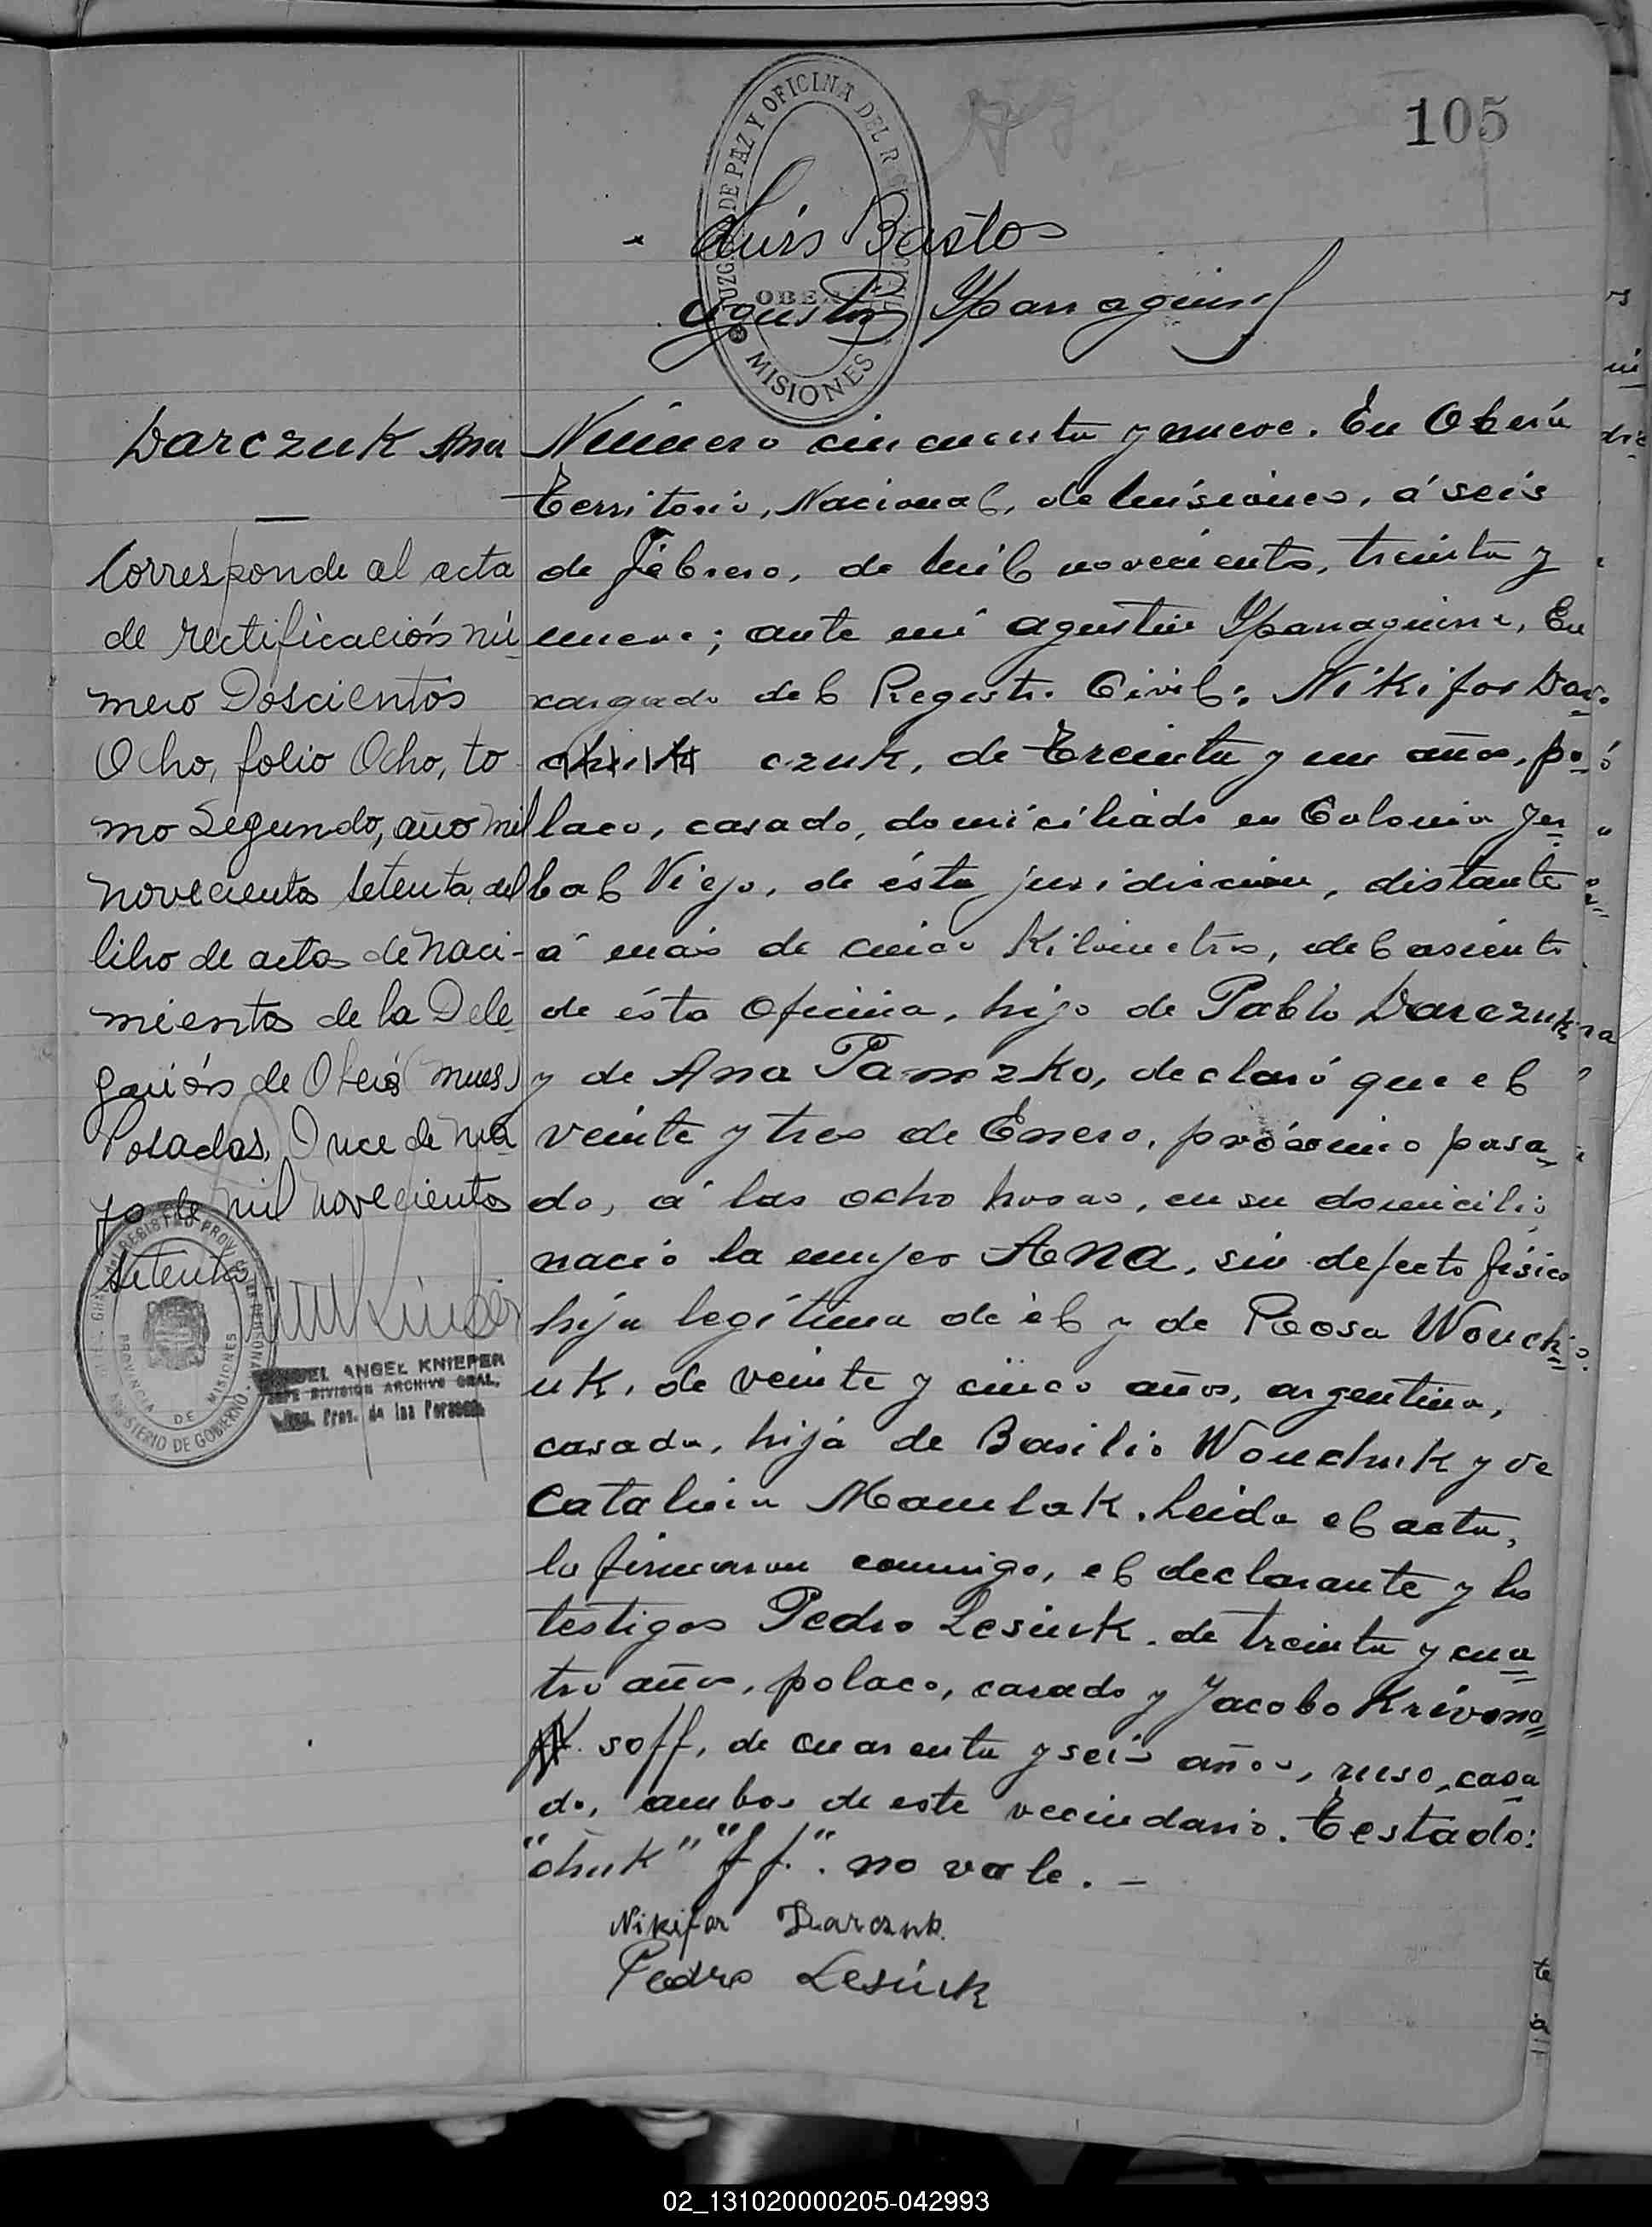 105
JUZGADO DE PAZ Y OFICINA DEL R
OBERA
MISIONES
Luis Bastos
Agustin Yparraguirre
Darczuk Ana
Corresponde al acta
de rectificación nú-
mero Doscientos
Ocho, folio Ocho, to-
mo Segundo, año mil
novecientos setenta, del
libro de actas de Naci-
mientos de la Dele-
gación de Oberá (mnes.)
Posadas, Once de Ma-
yo de mil novecientos
setenta
REGISTRO PROV
PROVINCIA DE MISIONES
MINISTERIO DE GOBIERNO
ANGEL KNIEPER
JEFE DIVISION ARCHIVO GRAL.
Reg. Prov. de las Personas
Número cincuenta y nueve. En Oberá
Territorio, Nacional, de Misiones, á seis
de Febrero, de mil novecientos, treinta y
nueve; ante mí Agustin Yparraguirre, En
cargado del Registro Civil: Nikifor Dar-
chuk czuk, de Treinta y un años, po-
laco, casado, domiciliado en Colonia Yer-
bal Viejo, de ésta juridicción, distante
á más de cinco Kilometros, del asiento
de ésta Oficina, hijo de Pablo Darczuk
y de Ana Panczko, declaró que el
veinte y tres de Enero, próximo pasa-
do, á las ocho horas, en su domicilio,
nació la mujer ANA, sin defecto físico
hija legítima de él y de Rosa Wouch-
uk, de veinte y cinco años, argentina,
casada, hija de Basilio Wouchuk y de
Catalina Mamlak. Leida el acta,
la firmaron conmigo, el declarante y los
testigos Pedro Lesiuk, de treinta y cua-
tro años, polaco, casado y Jacobo Krivono-
ff. soff, de cuarenta y seis años, ruso, casa-
do, ambos de este vecindario. Testado:
"chuk" "ff." no vale. -
Nikifor Darczuk.
Pedro Lesiuk
02_131020000205-042993